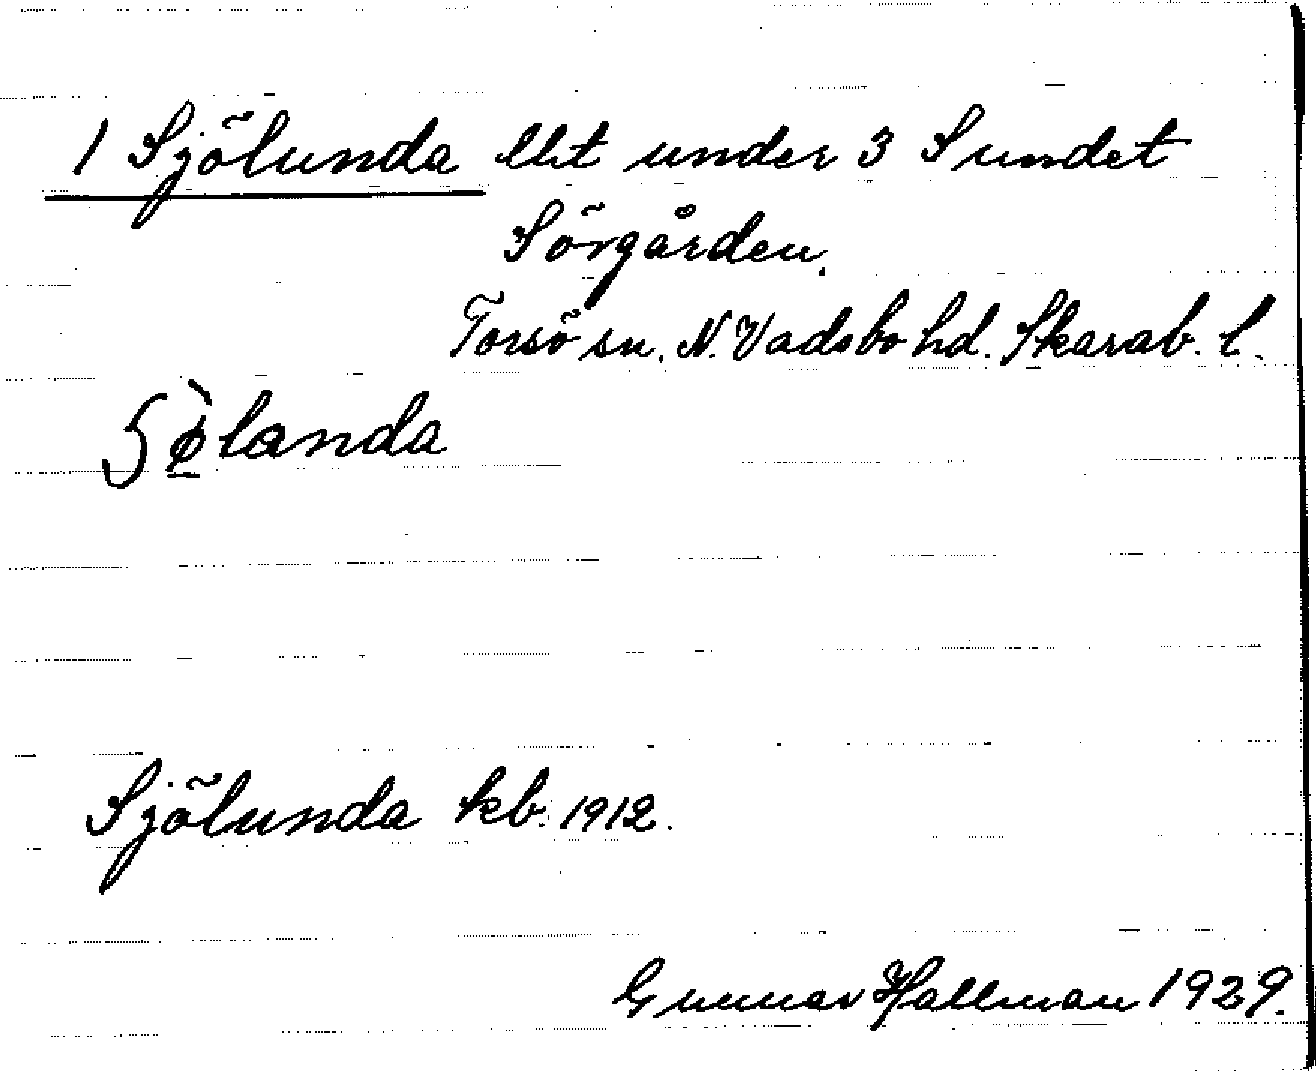 1 Sjölunda lht under 3 Sundet
Sörgården.
Torsö sn. N. Vadsbo hd. Skarab. l.
Sjölunda kb. 1912.
Gunnar Hallman 1929.